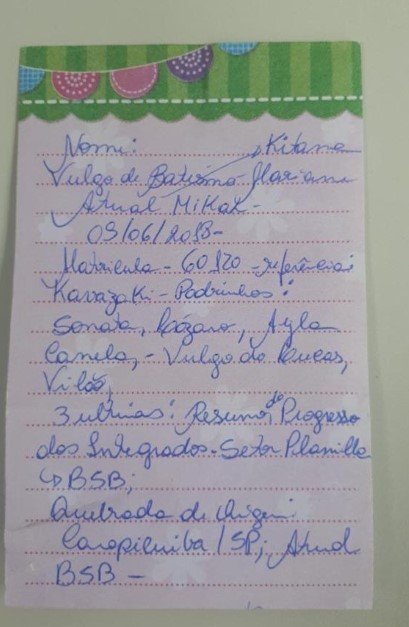 Nome: Kitana
Vulgo de Batismo
Atual Mikax -
03/06/2018-
Matricula - 60120 - referência:
Kavazaki - Padrinhos:
Sonata, Lázaro, Ayla
Canela, - Vulgo do Lucas,
Vilão,
3 ultimas: Resumo, do Progresso
dos Integrados - Setor Planilha
↳ BSB;
Quebrada de Origem:
Carapicuiba / SP; Atual
BSB -